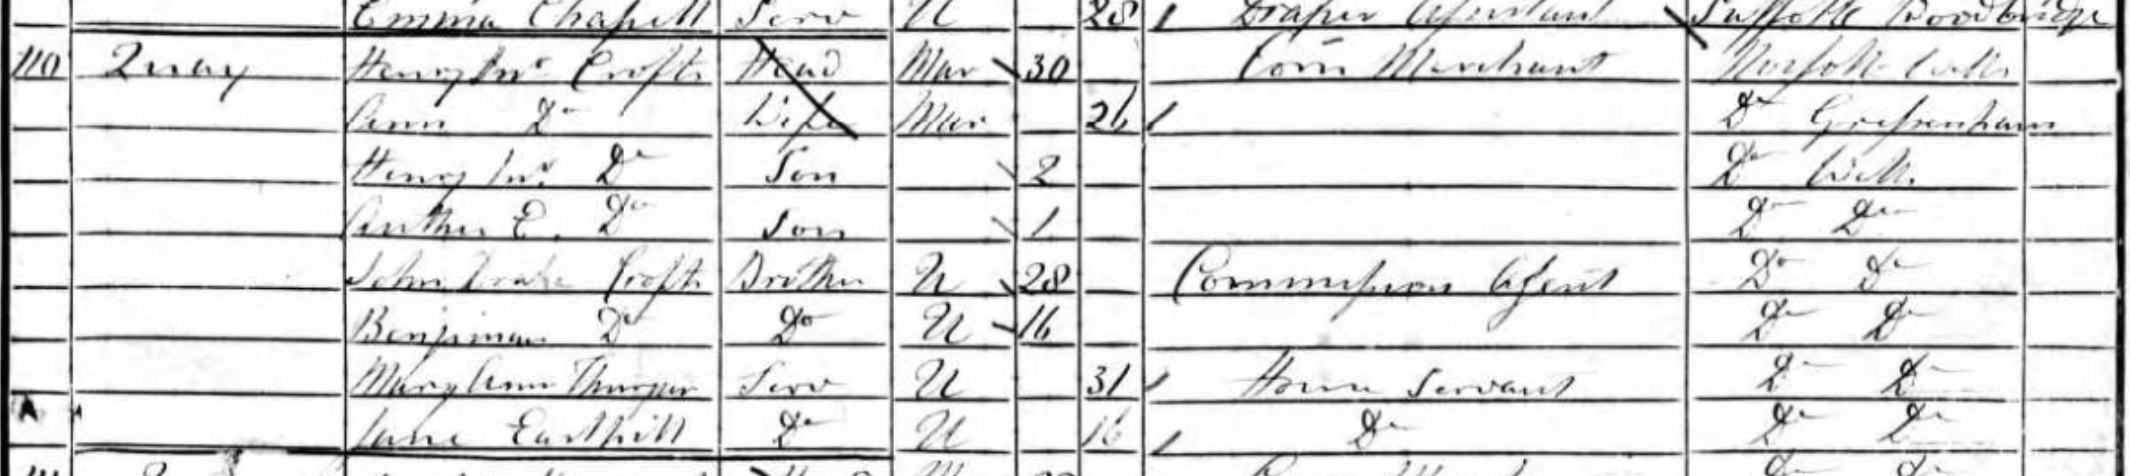 Emma Chapell Serv U 28 Draper Assistant Suffolk Woodbridge
110 Quay Henry Jnº Crofts Head Mar 30 Corn Merchant Norfolk Wells
Ann Dº Wife Mar 26 Dº Gressenham
Henry Jnº Dº Son 2 Dº Wells
Arthur E. Dº Son 1 Dº Dº
John Drake Crofts Brother U 28 Commission Agent Dº Dº
Benjiman Dº Dº U 16 Dº Dº
Mary Ann Serv U 31 House Servant Dº Dº
Jane Dº U 16 Dº Dº Dº